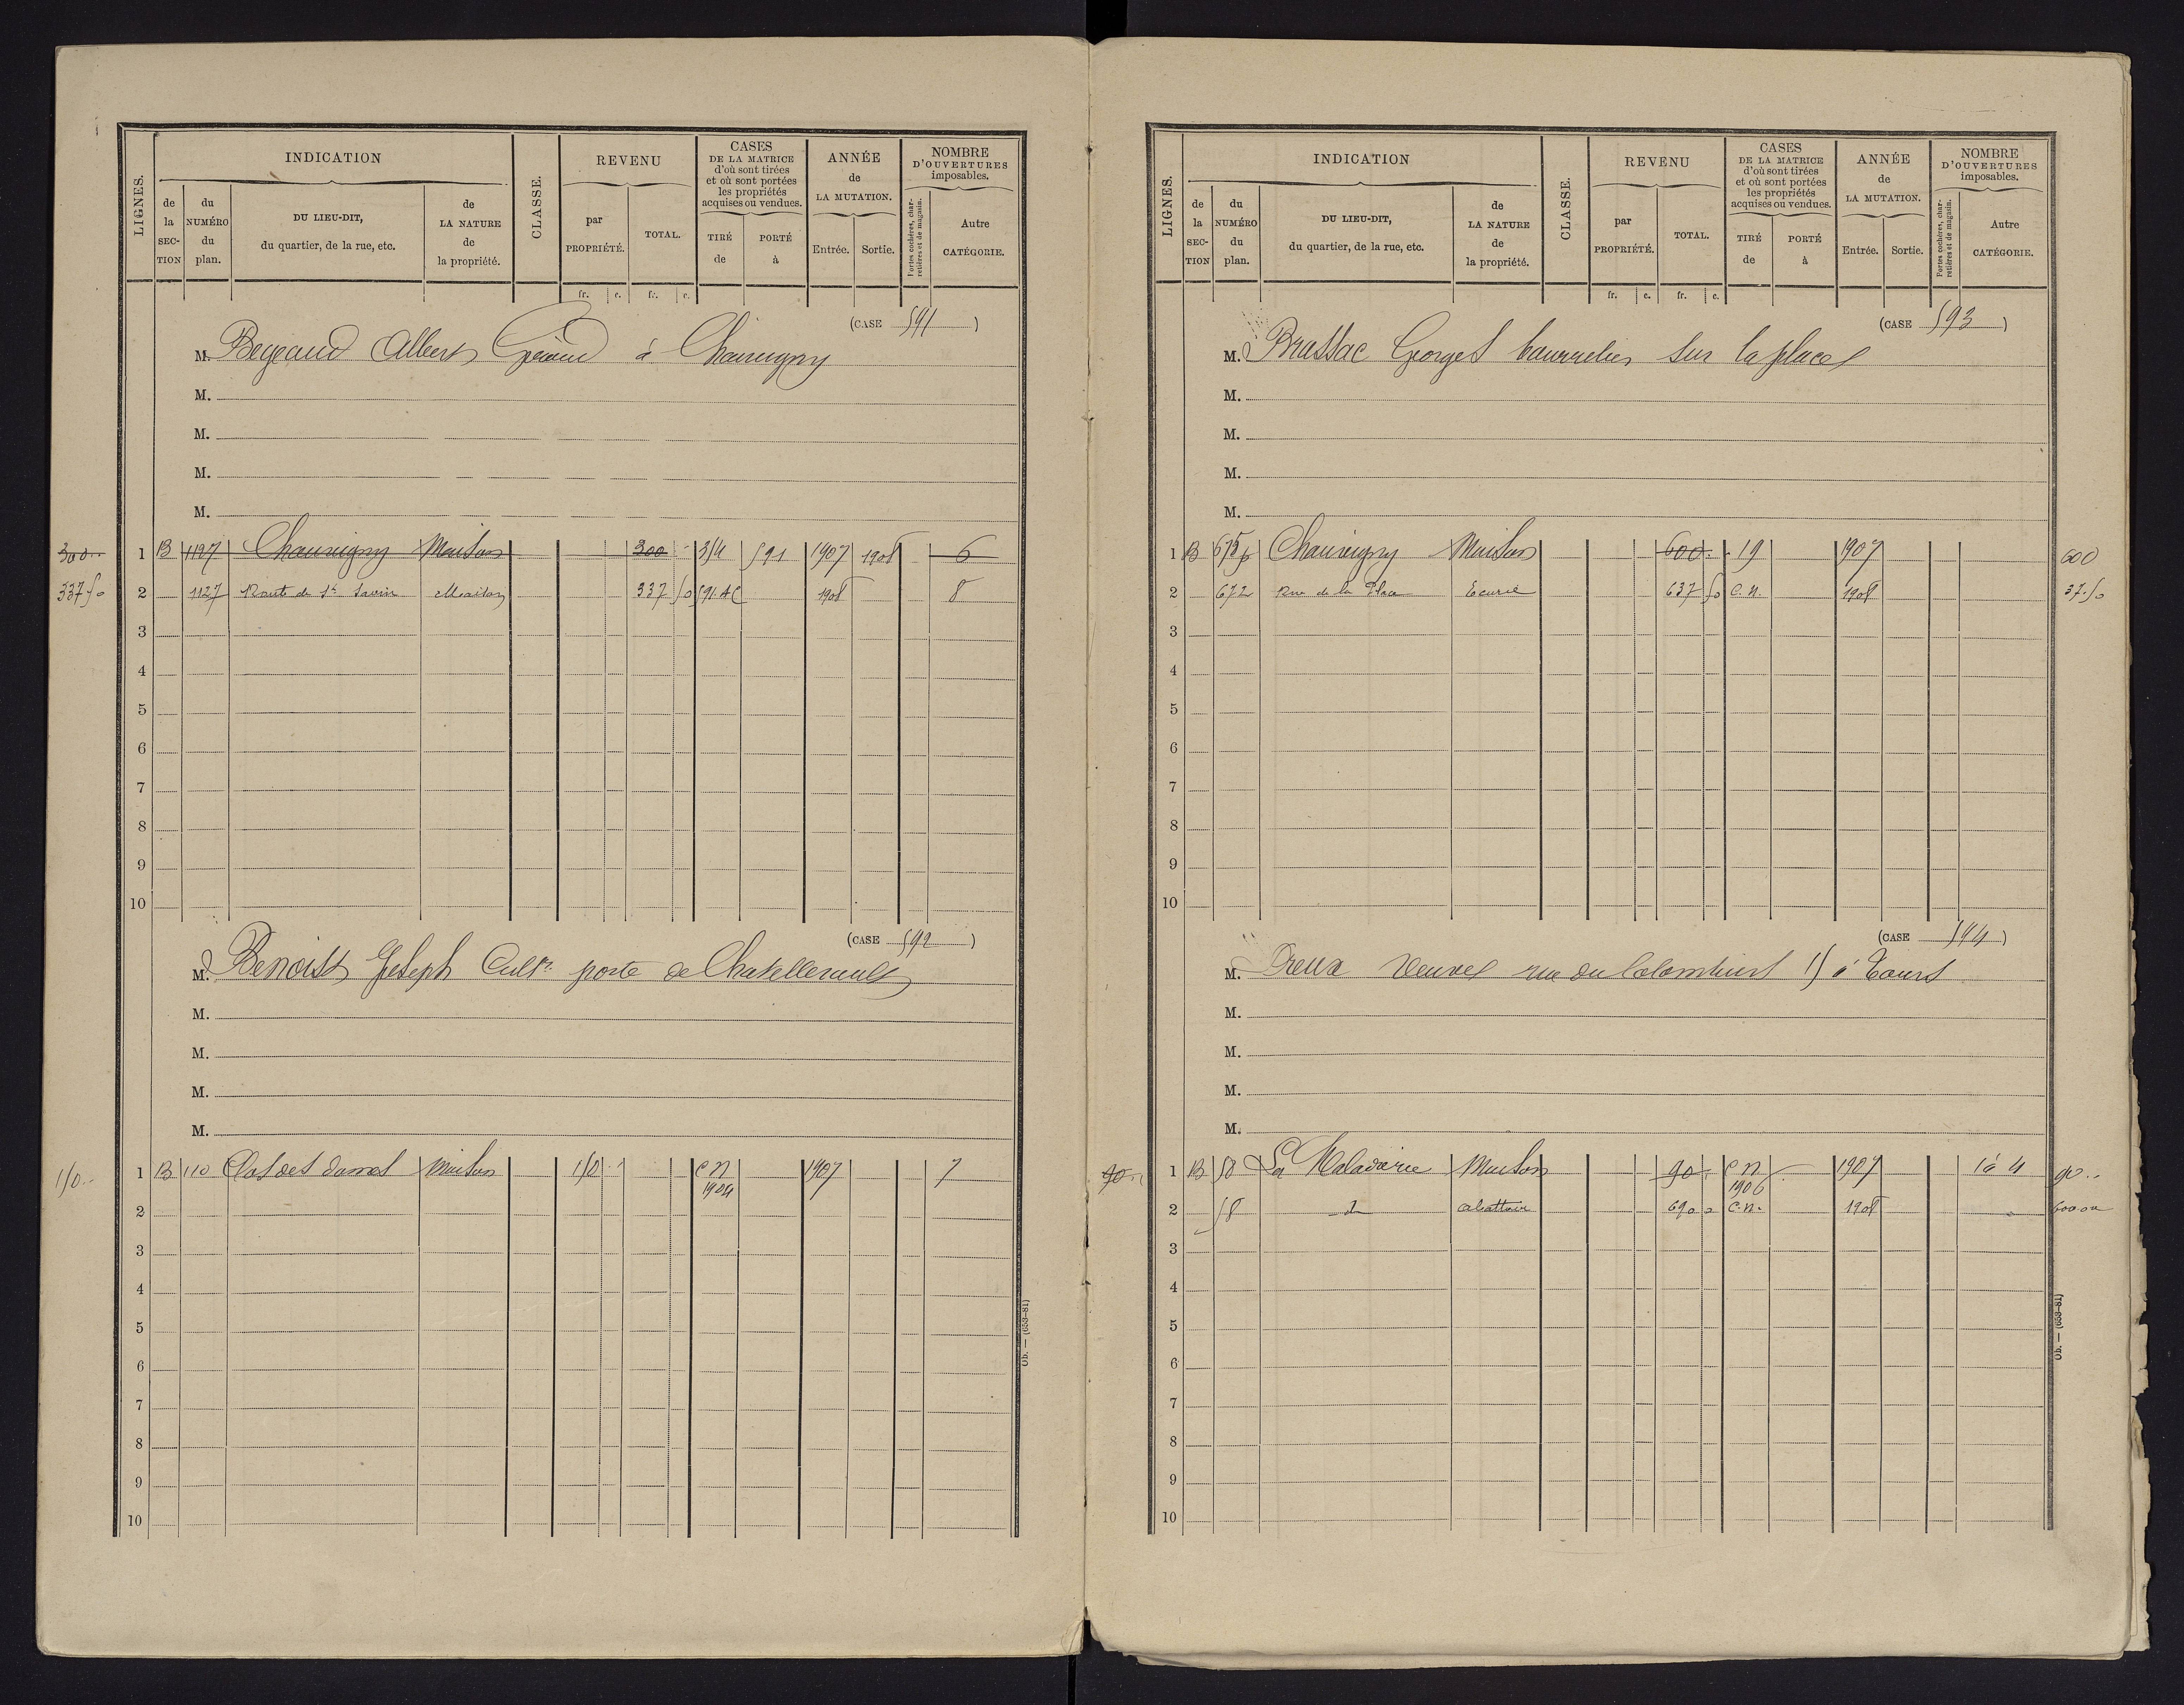 LIGNES. INDICATION CLASSE. REVENU CASES DE LA MATRICE d'où sont tirées et où sont portées les propriétés acquises ou vendues. ANNÉE de LA MUTATION. NOMBRE D'OUVERTURES imposables.
de la SEC-TION du NUMÉRO du plan. DU LIEU-DIT, du quartier, de la rue, etc. de LA NATURE de la propriété. par PROPRIÉTÉ. TOTAL. TIRÉ de PORTÉ à Entrée. Sortie. Portes cochères, charretières et de magasin. Autre CATÉGORIE.
fr. c. fr. c.
(CASE 591)
M. Albert à Chauvigny
M.
M.
M.
M.
300 .. 1 B 1127 Chauvigny Maison 300 314 591 1907 1908 6
337 50 2 1127 Route de St Savin Maison 337 50 591 AC 1908 8
3
4
5
6
7
8
9
10
(CASE 592)
M. Benoist Joseph Cultr porte de Chatellerault
M.
M.
M.
M.
150 .. 1 B 110 Clos des dames Maison 150 C N 1904 1907 7
2
3
4
5
6
7
8
9
10
Ob. — (653-81)
LIGNES. INDICATION CLASSE. REVENU CASES DE LA MATRICE d'où sont tirées et où sont portées les propriétés acquises ou vendues. ANNÉE de LA MUTATION. NOMBRE D'OUVERTURES imposables.
de la SEC-TION du NUMÉRO du plan. DU LIEU-DIT, du quartier, de la rue, etc. de LA NATURE de la propriété. par PROPRIÉTÉ. TOTAL. TIRÉ de PORTÉ à Entrée. Sortie. Portes cochères, charretières et de magasin. Autre CATÉGORIE.
fr. c. fr. c.
(CASE 593)
M. Brassac Georges bourrelier sur la place
M.
M.
M.
M.
1 B 675 p Chauvigny Maison 600 19 1907 600
2 672 Rue de la Place Ecurie 637 50 C.N. 1908 37.50
3
4
5
6
7
8
9
10
(CASE 594)
M. Dreux Veuve rue du Colombier 15 à Tours
M.
M.
M.
M.
90 .. 1 B 58 La Maladrerie Maison 90 C N 1906 1907 1 à 4 90 ..
2 58 d abattoir 690 C.N. 1908 600.00
3
4
5
6
7
8
9
10
Ob. — (653-81)